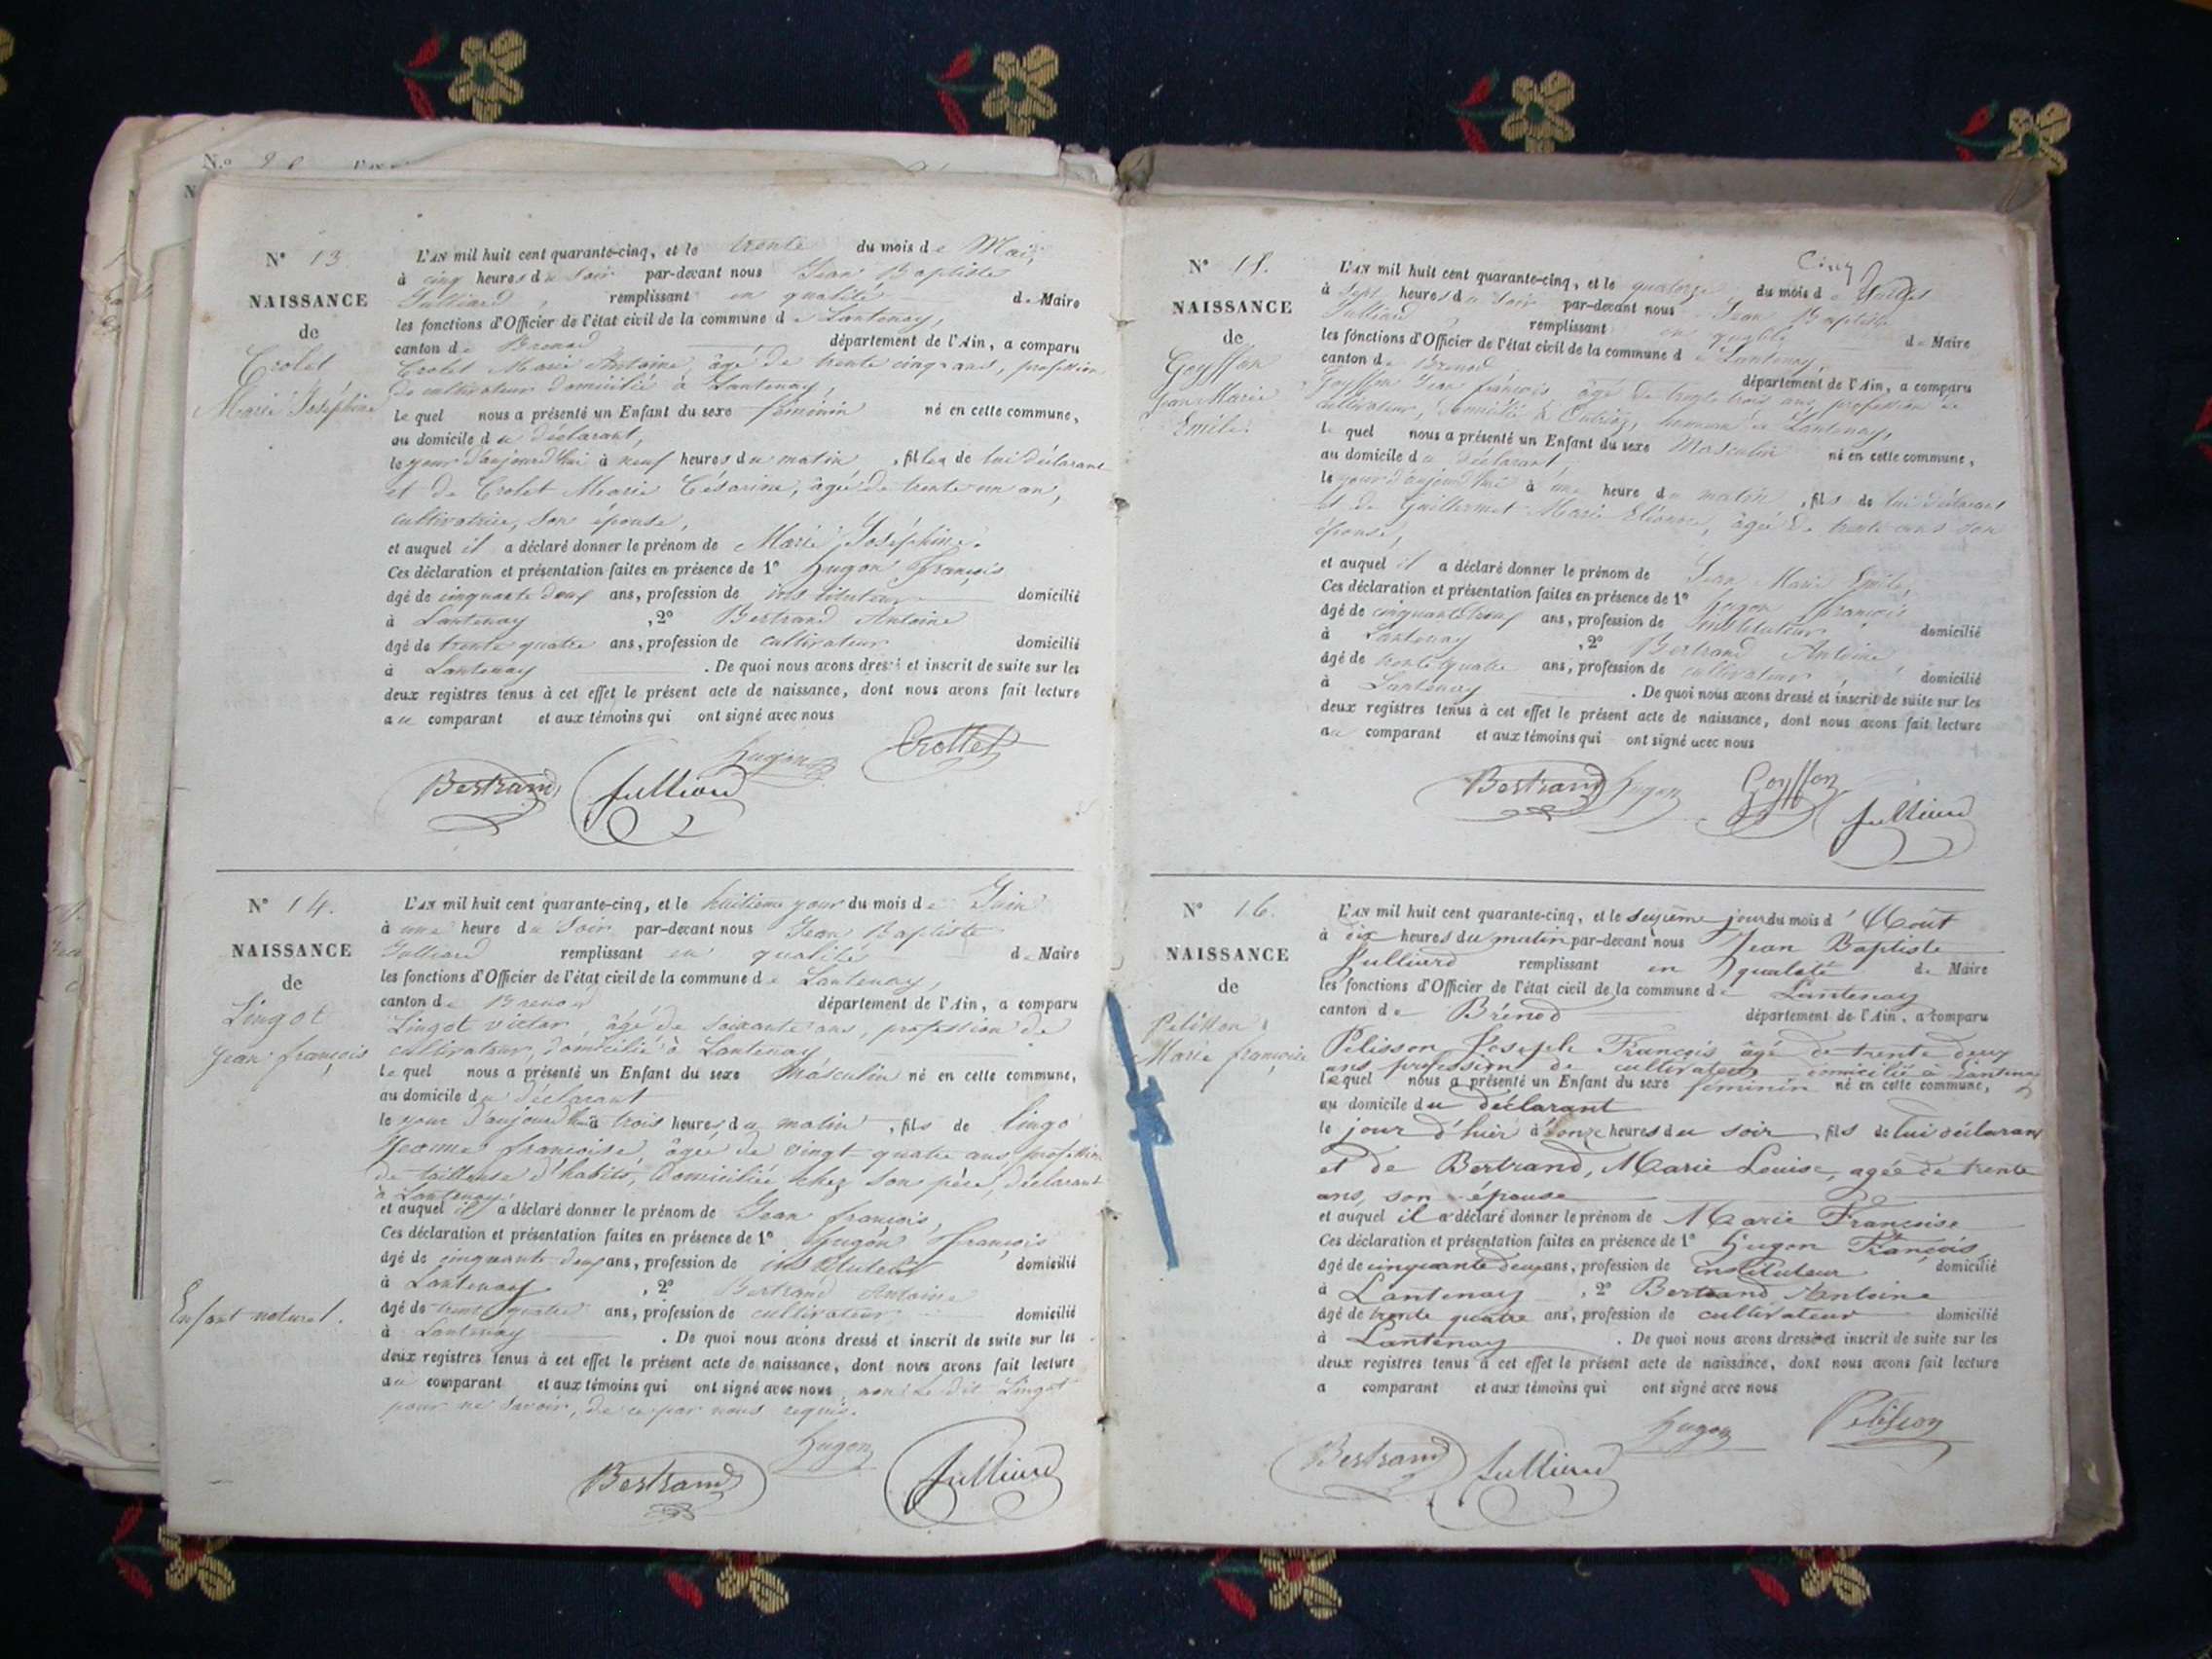 N° 13
NAISSANCE
de
Crolet
Marie Joséphine
L'AN mil huit cent quarante-cinq, et le trente du mois de Mai,
à cinq heures du soir par-devant nous Jean Baptiste
Julliard, remplissant en qualité de Maire
les fonctions d'Officier de l'état civil de la commune de Lantenay,
canton de Brenod département de l'Ain, a comparu
Crolet Marie Antoine, âgé de trente cinq ans, profession
de cultivateur domicilié à Lantenay,
le quel nous a présenté un Enfant du sexe féminin né en cette commune,
au domicile du déclarant,
le jour d'aujourd'hui à neuf heures du matin, fille de lui déclarant
et de Crolet Marie Césarine, âgée de trente un an,
cultivatrice, son épouse,
et auquel il a déclaré donner le prénom de Marie Joséphine.
Ces déclaration et présentation faites en présence de 1° hugon françois
âgé de cinquante deux ans, profession de instituteur domicilié
à Lantenay, 2° Bertrand Antoine
âgé de trente quatre ans, profession de cultivateur domicilié
à Lantenay. De quoi nous avons dressé et inscrit de suite sur les
deux registres tenus à cet effet le présent acte de naissance, dont nous avons fait lecture
au comparant et aux témoins qui ont signé avec nous
Bertrand Julliard hugon Crollet
N° 14.
NAISSANCE
de
Lingot
Jean françois
Enfant naturel.
L'AN mil huit cent quarante-cinq, et le huitième jour du mois de Juin
à une heure du soir par-devant nous Jean Baptiste
Julliard remplissant en qualité de Maire
les fonctions d'Officier de l'état civil de la commune de Lantenay,
canton de Brenod département de l'Ain, a comparu
Lingot victor, âgé de soixante ans, profession de
cultivateur, domicilié à Lantenay
le quel nous a présenté un Enfant du sexe masculin né en cette commune,
au domicile du déclarant
le jour d'aujourd'hui à trois heures du matin, fils de lingo
Jeanne françoise, âgée de vingt quatre ans profession
de tailleuse d'habits, domiciliée chez son père, déclarant
à Lantenay,
et auquel il a déclaré donner le prénom de Jean françois,
Ces déclaration et présentation faites en présence de 1° hugon françois
âgé de cinquante deux ans, profession de instituteur domicilié
à Lantenay, 2° Bertrand Antoine
âgé de trente quatre ans, profession de cultivateur domicilié
à Lantenay. De quoi nous avons dressé et inscrit de suite sur les
deux registres tenus à cet effet le présent acte de naissance, dont nous avons fait lecture
au comparant et aux témoins qui ont signé avec nous, non le dit Lingot
pour ne savoir, de ce par nous requis.
Bertrand hugon Julliard
N° 15.
NAISSANCE
de
Goyffon
Jean Marie
Emile.
Cinq
L'AN mil huit cent quarante-cinq, et le quatorze du mois de Juillet
à sept heures du soir par-devant nous Jean Baptiste
Julliard remplissant en qualité de Maire
les fonctions d'Officier de l'état civil de la commune de Lantenay,
canton de Brenod département de l'Ain, a comparu
Goyffon Jean françois âgé de trente trois ans, profession de
cultivateur, domicilié à Outriaz, hameau de Lantenay,
le quel nous a présenté un Enfant du sexe Masculin né en cette commune,
au domicile du déclarant,
le jour d'aujourd'hui à une heure du matin, fils de lui déclarant
et de Guillermet Marie Eléonore, âgée de trente ans son
épouse,
et auquel il a déclaré donner le prénom de Jean Marie Emile,
Ces déclaration et présentation faites en présence de 1° hugon françois
âgé de cinquante deux ans, profession de instituteur, domicilié
à Lantenay, 2° Bertrand Antoine
âgé de trente quatre ans, profession de cultivateur, domicilié
à Lantenay. De quoi nous avons dressé et inscrit de suite sur les
deux registres tenus à cet effet le présent acte de naissance, dont nous avons fait lecture
au comparant et aux témoins qui ont signé avec nous
Bertrand hugon Goyffon Julliard
N° 16.
NAISSANCE
de
Pelisson
Marie françoise
L'AN mil huit cent quarante-cinq, et le seizième jour du mois d'Août
à dix heures du matin par-devant nous Jean Baptiste
Julliard remplissant en qualité de Maire
les fonctions d'Officier de l'état civil de la commune de Lantenay
canton de Brénod département de l'Ain, a comparu
Pelisson Joseph François âgé de trente deux
ans profession de cultivateur domicilié à Lantenay
lequel nous a présenté un Enfant du sexe féminin né en cette commune,
au domicile du déclarant
le jour d'hier à onze heures du soir, fils de lui déclarant
et de Bertrand, Marie Louise, agée de trente
ans, son épouse
et auquel il a déclaré donner le prénom de Marie Françoise
Ces déclaration et présentation faites en présence de 1° hugon François
âgé de cinquante deux ans, profession de instituteur domicilié
à Lantenay, 2° Bertrand Antoine
âgé de trente quatre ans, profession de cultivateur domicilié
à Lantenay. De quoi nous avons dressé et inscrit de suite sur les
deux registres tenus à cet effet le présent acte de naissance, dont nous avons fait lecture
a comparant et aux témoins qui ont signé avec nous
Bertrand Julliard hugon Pelisson